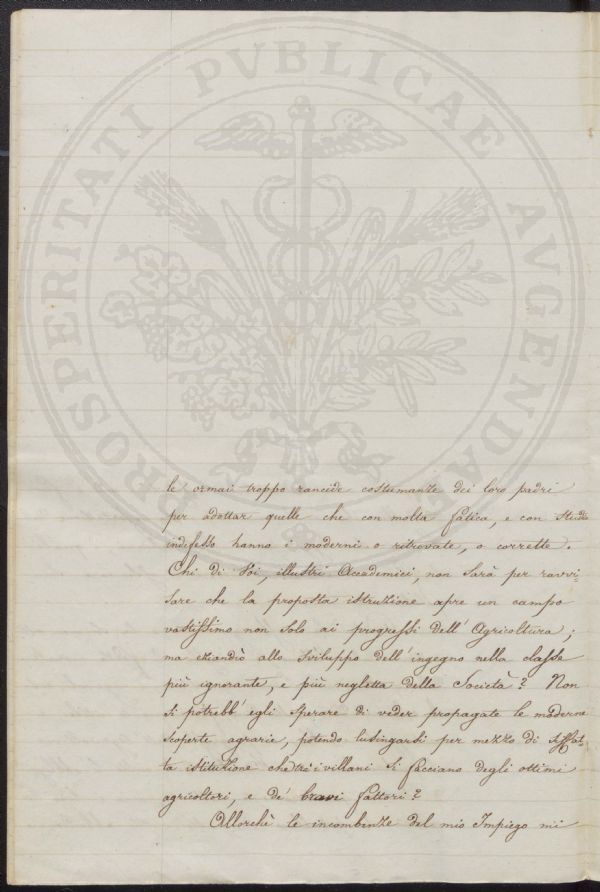 PROSPERITATI PVBLICAE AVGENDAE
le ormai troppo rancide costumanze dei loro padri
per adottar quelle che con molta fatica, e con studio
indefesso hanno i moderni o ritrovate, o corrette.
Chi di Voi, illustri Accademici, non sarà per ravvi=
sare che la proposta istruzione apre un campo
vastissimo non solo ai progressi dell' Agricoltura;
ma eziandio allo sviluppo dell' ingegno nella classe
più ignorante, e più negletta della Società? Non
si potrebb' egli sperare di veder propagate le moderne
scoperte agrarie, potendo lusingarsi per mezzo di siffat=
ta istituzione che trà i villani si facciano degli ottimi
agricoltori, e de' bravi fattori?
Allorchè le incombenze del mio Impiego mi